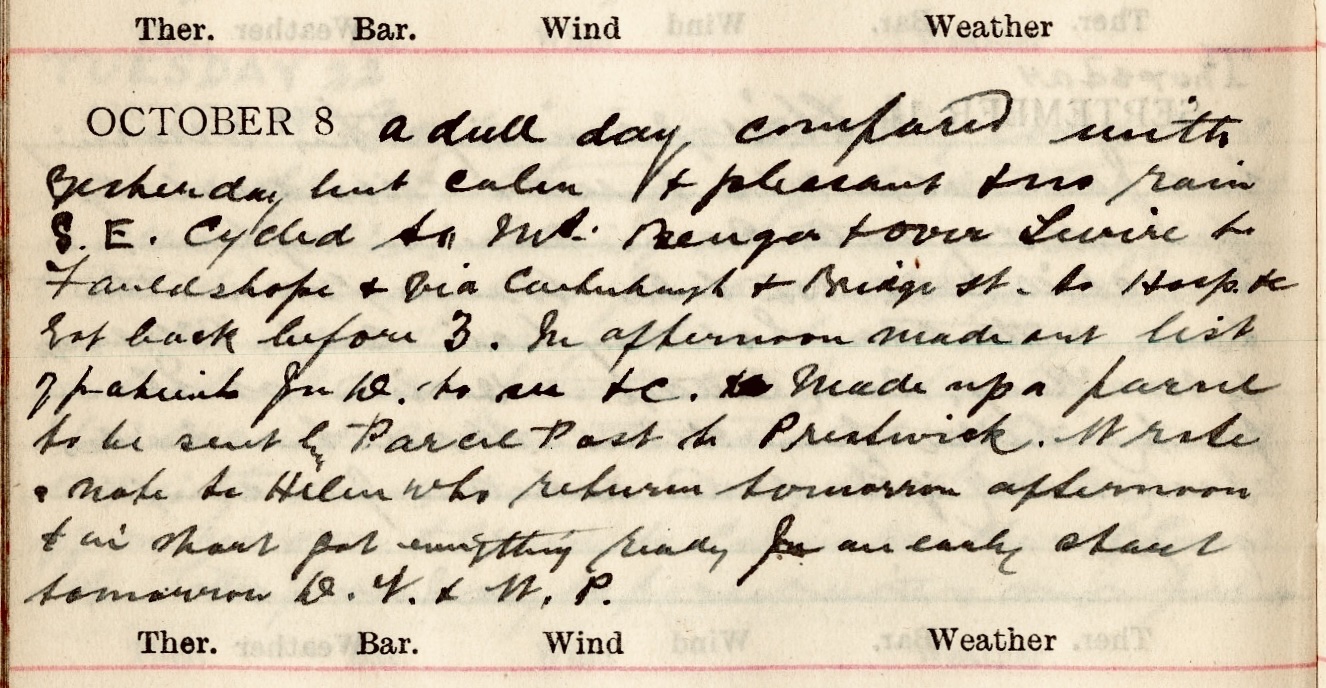 Ther. Bar. Wind Weather
OCTOBER 8 a dull day compared with
yesterday but calm & pleasant & no rain
S. E. Cycled to Mt. Benger & over Swire to
Fauldshope & via Carterhaugh & Bridge st. to Hosp. &c
Got back before 3. In afternoon made out list
of patients for D. to see &c. Made up a parcel
to be sent by Parcel Post to Prestwick. Wrote
a note to Helen who returns tomorrow afternoon
& in short got everything ready for an early start
tomorrow D. V. & W. P.
Ther. Bar. Wind Weather